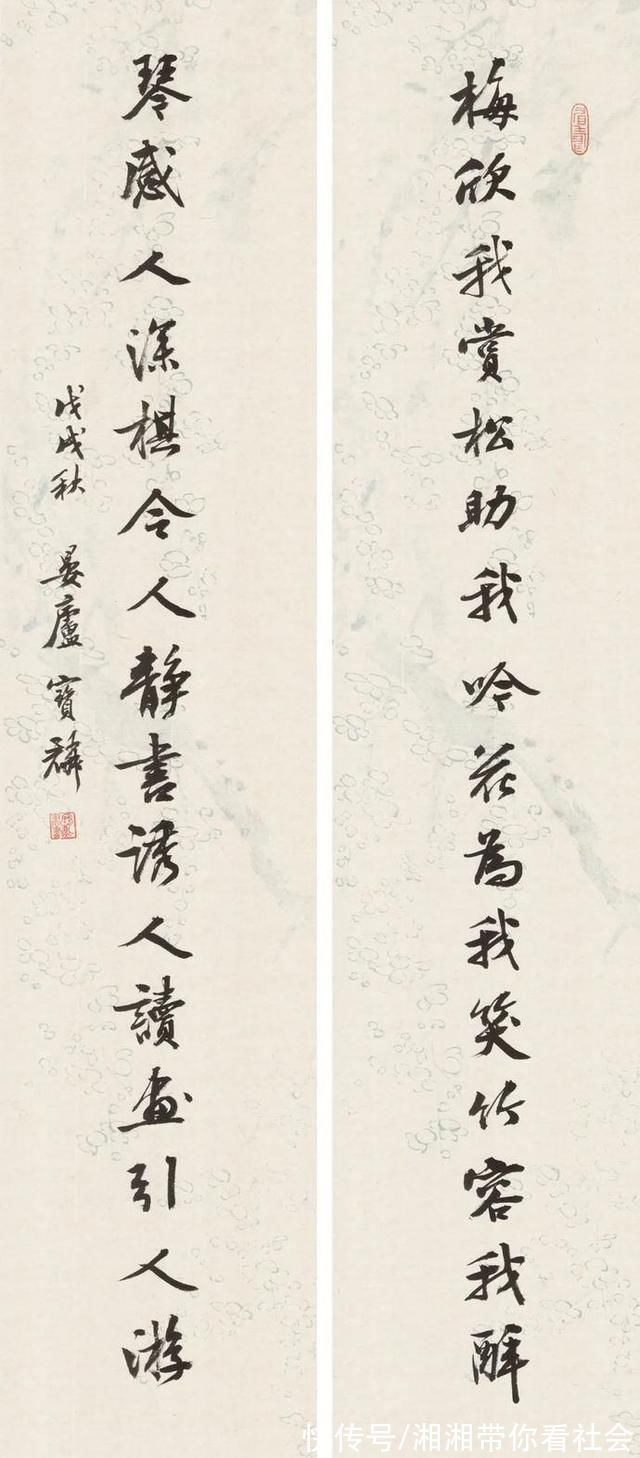 梅欣我賞松助我吟花為我笑竹容我酣
琴感人深棋令人静書誘人讀畫引人游
戊戌秋 晏廬寶麟
快传号/湘湘带你看社会